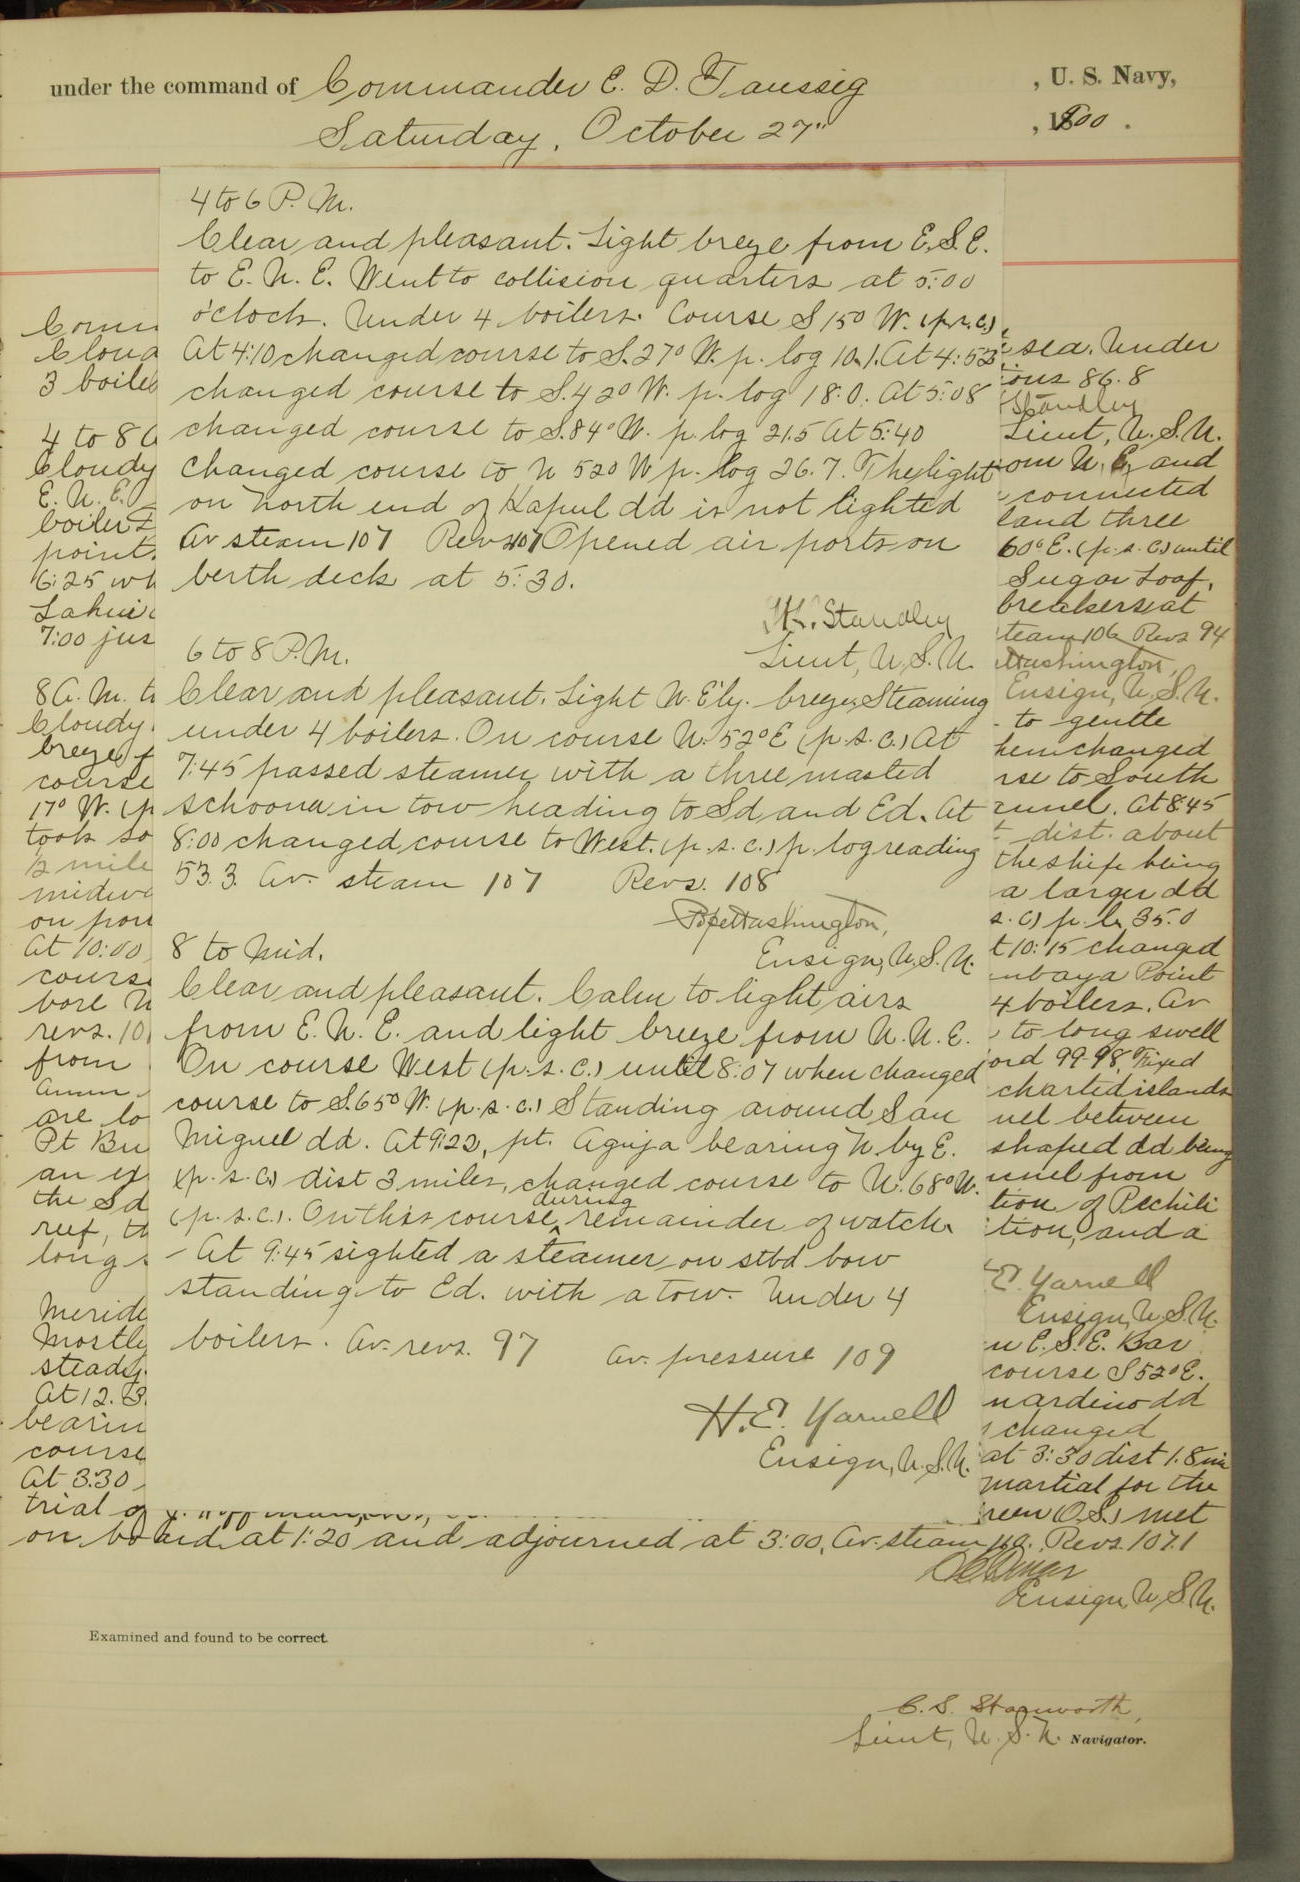 under the command of Commander E. D. Taussig , U. S. Navy,
Saturday, October 27" , 1900 .
4 to 6 P. M.
Clear and pleasant. Light breeze from E.S.E.
to E. N. E. Went to collision quarters at 5:00
o'clock. Under 4 boilers. Course S 15° W. (p.s.c.)
At 4:10 changed course to S. 27° W. p. log 10.1. At 4:53
changed course to S. 42° W. p. log 18.0. At 5:08
changed course to S. 84° W. p. log 21.5 At 5:40
changed course to N 52° W p. log 26.7. The light
on north end of Kapul Id is not lighted
Av steam 107 Revs 107 Opened air ports on
berth deck at 5:30.
Standley
Lieut, U.S.N.
6 to 8 P.M.
Clear and pleasant. Light N. E'ly. breeze, Steaming
under 4 boilers. On course N. 52° E (p.s.c.) At
7:45 passed steamer with a three masted
schooner in tow heading to Sd and Ed. At
8:00 changed course to West. (p.s.c.) p. log reading
53.3. Av. steam 107 Revs. 108
Pope Washington,
Ensign, U.S.N.
8 to Mid.
Clear and pleasant. Calm to light airs
from E. N. E. and light breeze from N. N. E.
On course West (p.s.c.) until 8:07 when changed
course to S. 65° W. (p.s.c.) Standing around San
Miguel Id. At 9:22, pt. Aguja bearing N by E.
(p.s.c.) dist 3 miles, changed course to N. 68° W.
(p.s.c.). On this course during remainder of watch.
- At 9:45 sighted a steamer on stbd bow
standing to Ed. with a tow. Under 4
boilers. Av. revs. 97 Av. pressure 109
H. E. Yarnell
Ensign, U.S.N.
Cloudy
3 boile
4 to 8 A
Cloudy
E. N. E.
boiler
point.
6:25 wh
7:00 jus
8 A.M. t
Cloudy
breeze f
course
17° W. (p
took so
1/2 mile
midw
on por
At 10:00
course
bore N
revs. 10
from
are lo
Pt Bu
an
the Sd
reef, th
long s
Meridi
Mostly
steady
At 12.
bearin
course
At 3:30
trial of
sea. Under
86.8
Standley
Lieut, U.S.N.
and
connected
land three
60° E. (p.s.c.) until
Sugar Loaf,
breakers at
steam 106 Revs 94
Washington,
Ensign, U.S.N.
to gentle
hem changed
rse to South
annel. At 8:45
dist. about
the ship being
a larger Id
s.c.) p. l. 35.0
t 10:15 changed
Point
4 boilers. Av
to long swell
ord 99-98, Fixed
charted islands
nel between
shaped Id being
nnel from
tion of Pechili
tion, and a
E. Yarnell
Ensign, U.S.N.
n E.S.E. Bar
course S 52° E.
nardino Id
changed
at 3:30 dist 1.8 mi
martial for the
met
on board at 1:20 and adjourned at 3:00. Av. steam Revs. 107.1
Ensign U.S.N.
Examined and found to be correct.
C. S. Stanworth,
Lieut, U. S. N. Navigator.